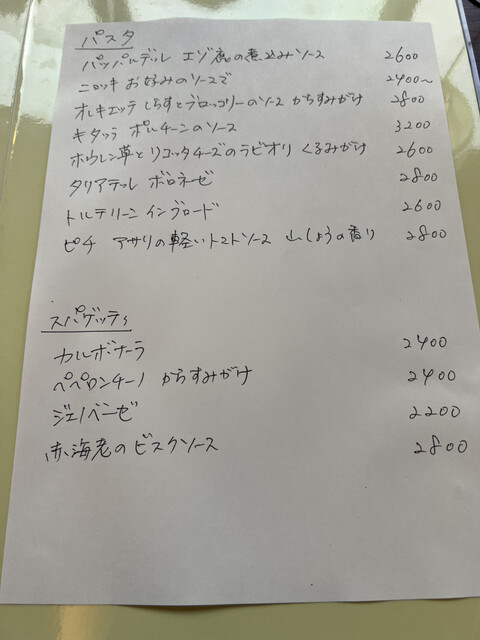 パスタ
パッパルデッレ エゾ鹿の煮込みソース 2600
ニョッキ お好みのソースで 2400〜
オレキエッテ しらすとブロッコリーのソース からすみがけ 2800
キタッラ ポルチーニのソース 3200
ホウレン草とリコッタチーズのラビオリ くるみがけ 2600
タリアテッレ ボロネーゼ 2800
トルテリーニ インブロード 2600
ピチ アサリの軽いトマトソース 山しょうの香り 2800
スパゲッティ
カルボナーラ 2400
ペペロンチーノ からすみがけ 2400
ジェノベーゼ 2200
赤海老のビスクソース 2800